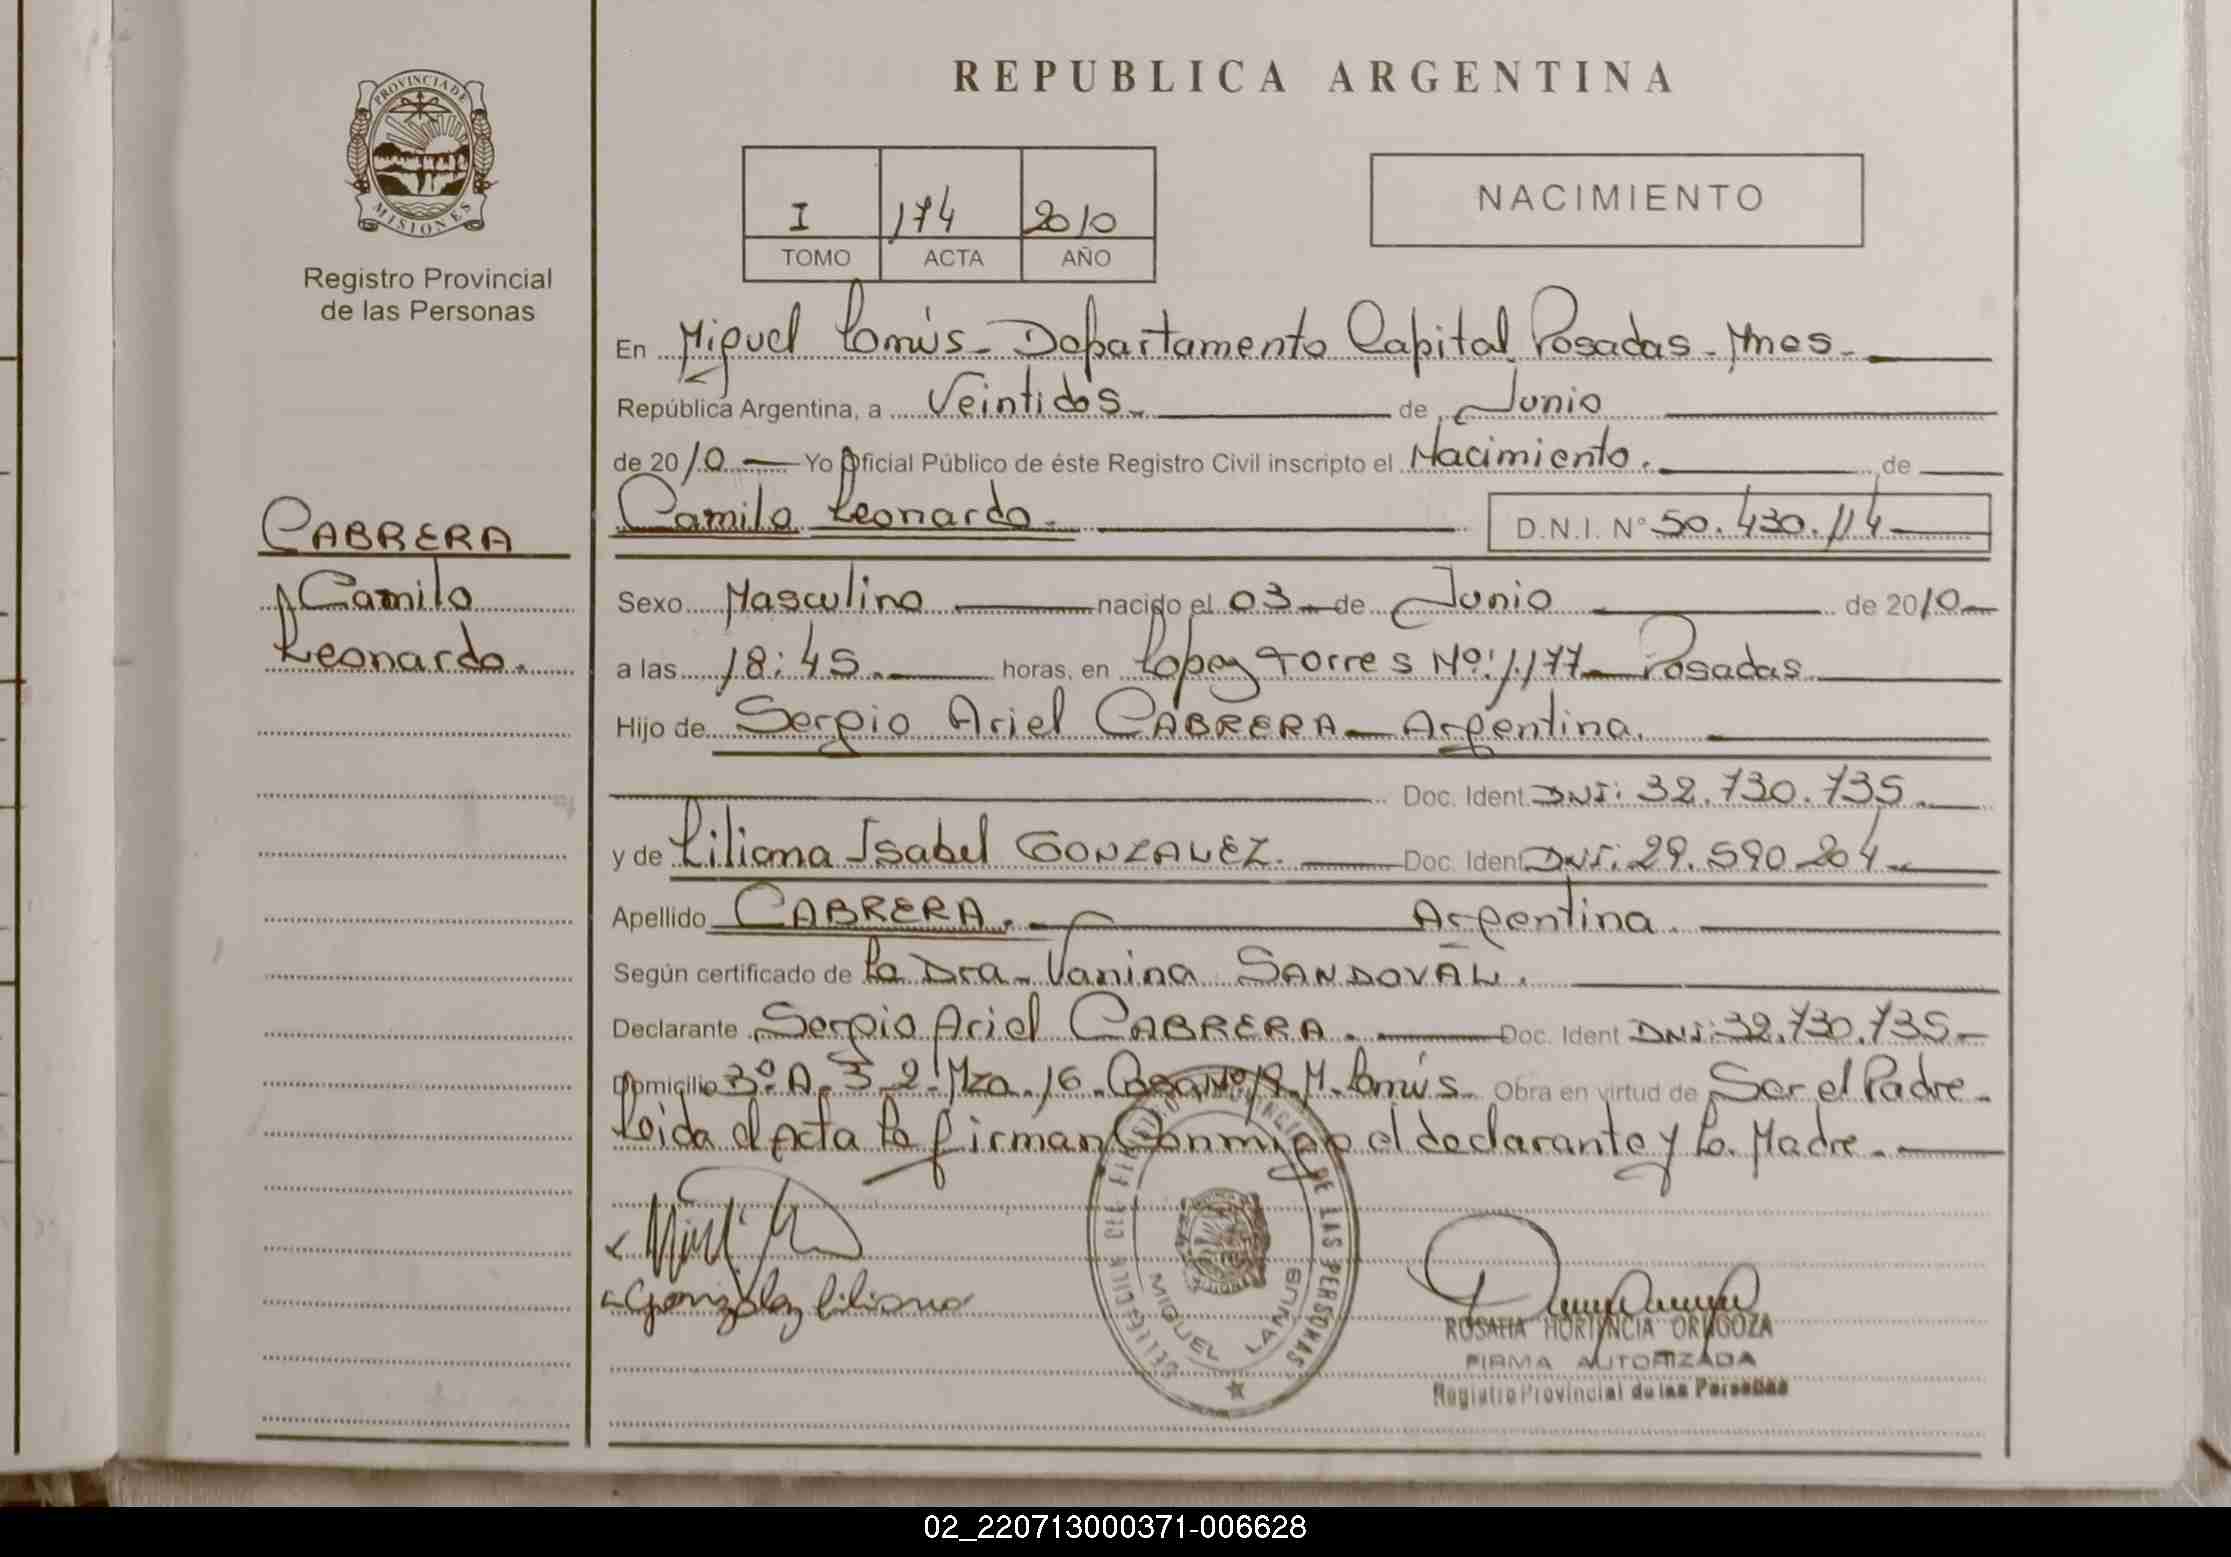 REPUBLICA ARGENTINA
PROVINCIA DE
MISIONES
Registro Provincial
de las Personas
I 174 2010
TOMO ACTA AÑO
NACIMIENTO
En Miguel Lanús - Departamento Capital Posadas - Mnes.
República Argentina, a Veintidós de Junio
de 2010 Yo Oficial Público de éste Registro Civil inscripto el Nacimiento. de
CABRERA
Camilo
Leonardo.
Camilo Leonardo. D.N.I. Nº 50.430.114
Sexo Masculino nacido el 03 de Junio de 2010
a las 18:45. horas, en Lopez Torres Nº: 1.177 - Posadas
Hijo de Sergio Ariel CABRERA - Argentina.
Doc. Ident. DNI: 32.730.735.
y de Liliana Isabel GONZALEZ. Doc. Ident. DNI: 29.590.204
Apellido CABRERA. Argentina.
Según certificado de la Dra. Vanina SANDOVAL.
Declarante Sergio Ariel CABRERA. Doc. Ident DNI: 32.730.735-
Domicilio 3º A. 3 2 Mza. 16 - Casa Nº M. Lanús. Obra en virtud de Ser el Padre.
Leida el Acta la firman Conmigo el declarante y la Madre.
González Liliana
DE LAS PERSONAS
MIGUEL LANUS
ROSALIA HORTENCIA
FIRMA AUTORIZADA
Registro Provincial de las Personas
02_220713000371-006628